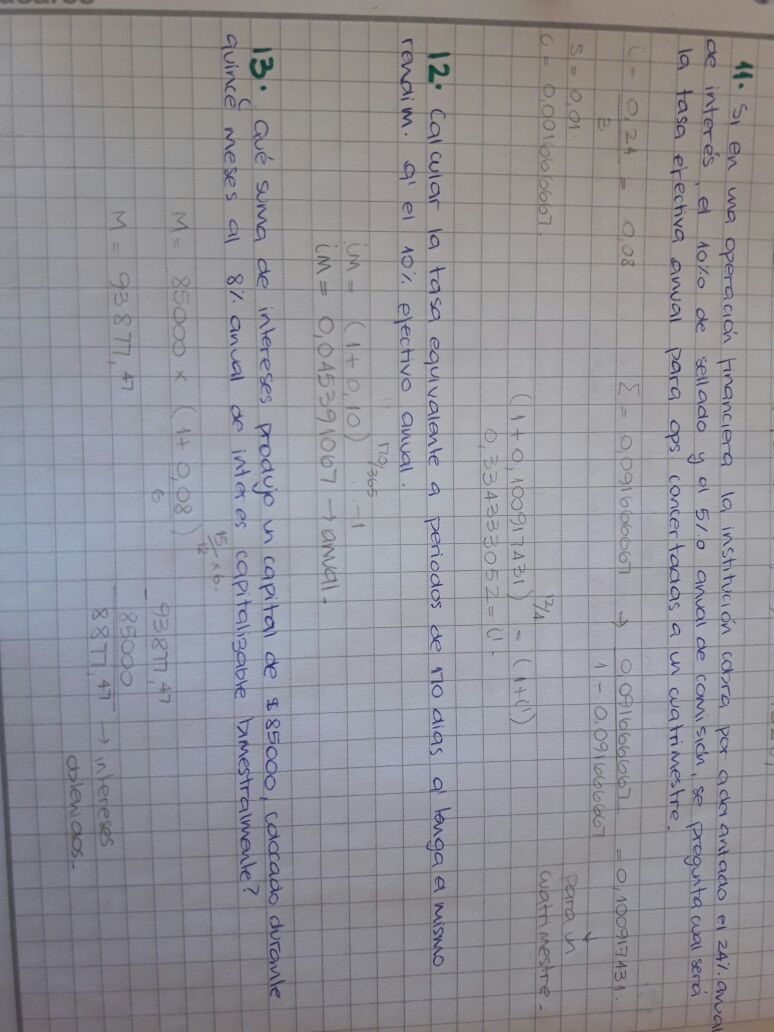 11. Si en una operación financiera la institución cobra por adelantado el 24% anual
de interés, el 10‰ de sellado y el 5‰ anual de comisión, se pregunta cual será
la tasa efectiva anual para ops concertadas a un cuatrimestre.
i = 0,24 / 3 = 0,08
Σ = 0,091666667 → 0,091666667 / 1 - 0,091666667 = 0,100917431.
S = 0,01.
C = 0,001666667.
↓
para un
cuatrimestre.
(1 + 0,100917431)^12/4 = (1+i')
0,334333052 = i'.
12. Calcular la tasa equivalente a periodos de 170 dias q' tenga = mismo
rendim. q' el 10% efectivo anual.
im = (1+0,10)^170/365 - 1
im = 0,045391067 → anual.
13. Qué suma de intereses produjo un capital de $85000, colocado durante
quince meses al 8% anual de interes capitalizable bimestralmente?
M = 85000 x (1 + 0,08 / 6)^15/12 x 6.
M = 93877,47
- 93877,47
85000
8877,47 → intereses
obtenidos.